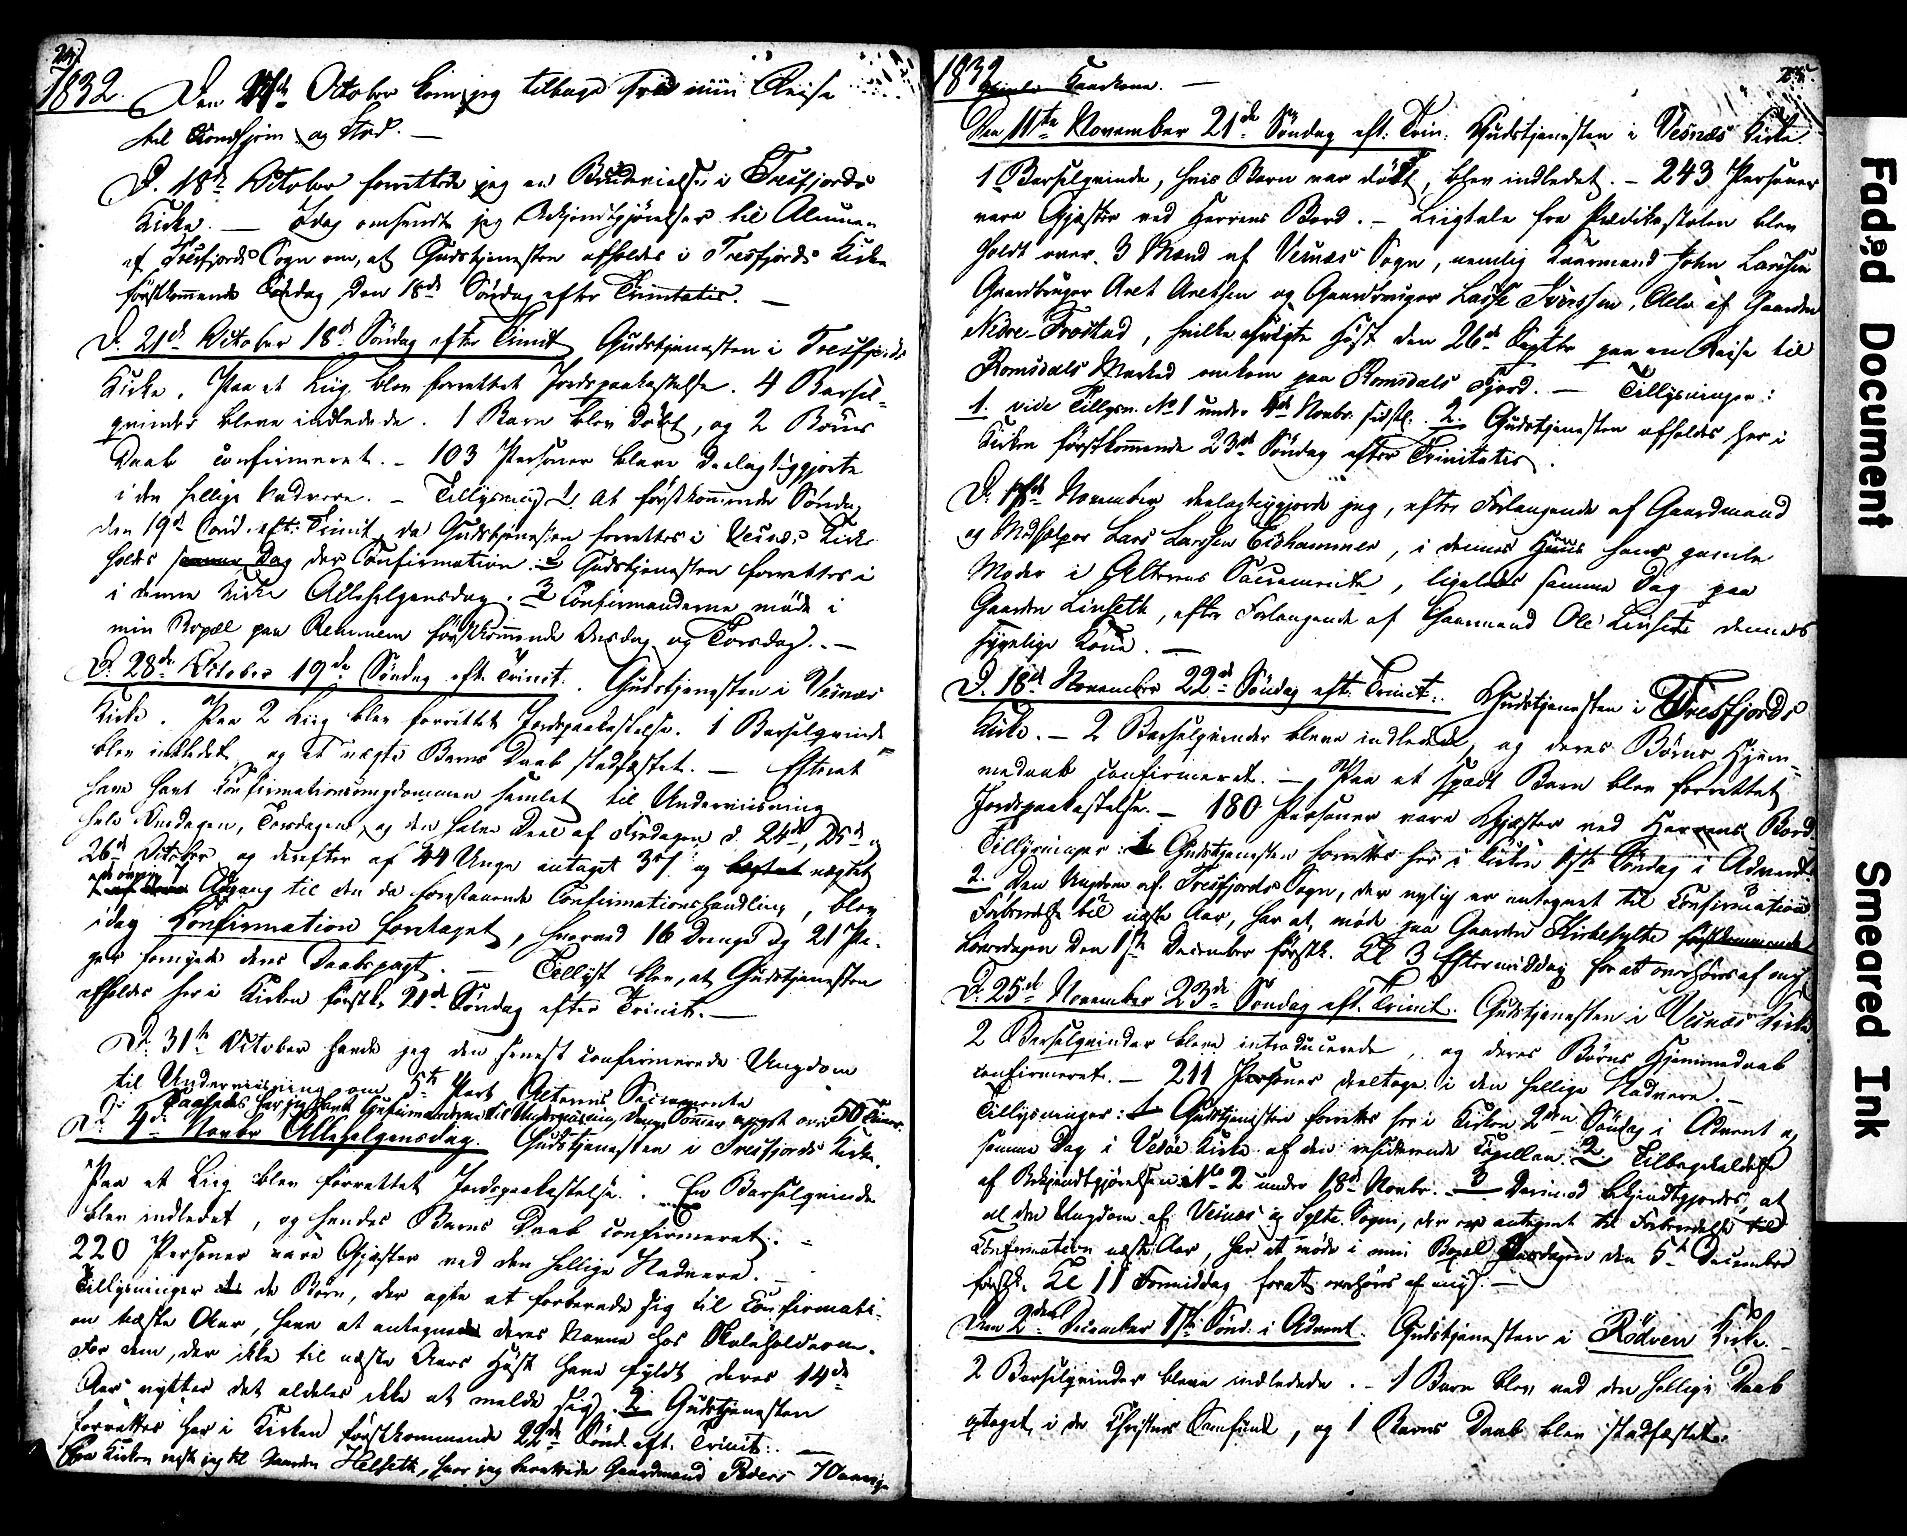 24.
1832. Den October kom jeg tilbage fra min Reise
til Trondhjem og Sted. —
D. 18de October forrettede jeg en Brudevielse i Tresfjords
Kirke. — Idag omsendt jeg Bekjendtgjørelser til Almuen
af Tresfjords Sogn om, at Gudstjenesten afholdes i Tresfjords Kirke
førstkommende Søndag den 18de Søndag efter Trinitatis. —
D. 21de October 18de Søndag efter Trinit. Gudstjenesten i Tresfjords
Kirke. Paa et Liig blev forrettet Jordspaakastelse. 4 Barsel-
qvinder bleve indledede. 1 Barn blev døbt, og 2 Børns
Daab confirmeret. – 103 Personer bleve deelagtiggjorte
i den hellige Nadvere. – Tillysning 1. At førstkommende Søndag
den 19de Sønd. eft. Trinit., da Gudstjenesten forrettes i Vesnæs Kirke
holdes samme Dag der Confirmation. 2 Gudstjenesten forrettes i
i denne Kirke Allehelgensdag. 3 Confirmanderne møde i
min Bopæl paa Remmem førstkommende Onsdag og Torsdag. –
D. 28de October 19de Søndag eft. Trinit. Gudstjenesten i Vesnæs
Kirke. Paa 2 Liig blev forrettet Jordspaakastelse. 1 Barselqvinde
blev indledet, og et uægte Barns Daab stadfæstet. — Efterat
have havt Confirmationsungdommen samlet til Underviisning
hele Onsdagen, Torsdagen, og den halve Deel af Fredagen d. 24de, 25de og
26de October og derefter af 44 Unge antaget 37 og nægtet
Adgang til den da forestaaende Confirmationshandling, blev
idag Confirmation foretaget, hvorved 16 Drenge og 21 Pi-
ger fornyede deres Daabspagt. — Tillyst blev, at Gudstjenesten
afholdes her i Kirken førstk. 21de Søndag efter Trinit. —
D. 31te October havde jeg den senest confirmerede Ungdom
til Underviisning om 5te Part Alterens Sacramente
Saaledes har jeg havt Confirmanderne til Underviisning denne Sommer omtrent 50 Timer.
D. 4de Novbr Allehelgensdag. Gudstjenesten i Tresfjords Kirke.
Paa et Liig blev forrettet Jordspaakastelse. En Barselqvinde
blev indledet, og hendes Barns Daab confirmeret. –
220 Personer vare Gjæster ved den hellige Nadvere. –
Tillysninger 1. de Børn, der agte at forberede sig til Confirmati-
on næste Aar, have at antegnede deres Navne hos Skoleholderne.
For dem, der ikke til næste Aars Høst have fyldt deres 14de
Aar nytter det aldeles ikke at melde sig. 2. Gudstjenesten
forrettes her i Kirken førstkommende 22de Sønd. eft. Trinit. —
Fra Kirken reiste jeg til Gaarden Helseth, hvor jeg berettede Gaardmand Peders 70aarige
1832 25.
Kone. —
Den 11te November 21de Søndag eft. Trin. Gudstjenesten i Vesnæs Kirke.
1 Barselqvinde, hvis Barn var dødt, blev indledet. – 243 Personer
vare Gjæster ved Herrens Bord. – Liigtale fra Prædikestolen blev
holdt over 3 Mænd af Vesnæs Sogn, nemlig Kaarmand John Larssen
Gaardbruger Aret Aretsen og Gaardbruger Lasse Iverssen, Alle af Gaarden
Nedre-Frostad, hvilke afvigte Høst den 26de Septbr paa en Reise til
Romsdals Marked omkom paa Romsdals Fjord. — Tillysninger:
1. vide Tillysn. No 1 under 4de Novbr. sidstl. 2. Gudstjenesten afholdes her i
Kirken førstkommende 23de Søndag efter Trinitatis.
D. November deelagtiggjorde jeg, efter Forlangende af Gaardmand
og Medhjelper Lars Larssen Eidhammer, i dennes Huus hans gamle
Moder i Alterens Sacramente, ligeledes samme Dag paa
Gaarden Linseth, efter Forlangende af Gaarmand Ole Linseth dennes
sygelige Kone. —
D. 18de November 22de Søndag eft. Trinit. Gudstjenesten i Tresfjords
Kirke. – 2 Barselqvinder bleve indledede, og deres Børns Hjem-
medaab confirmeret. — Paa et spædt Barn blev forrettet
Jordspaakastelse. – 180 Personer vare Gjæster ved Herrens Bord.
Tillysninger: 1 Gudstjenesten forrettes her i Kirken 1ste Søndag i Advent.
2. Den Ungdom af Tresfjords Sogn, der nylig er antegnet til Confirmation
Forberedelse til næste Aar, har at møde paa Gaarden Kirkesylte førstkommende
Løverdagen den 1ste December førstk. Kl 3 Eftermiddag for at overhøres af mig.
D. 25de November 23de Søndag eft. Trinit. Gudstjenesten i Vesnæs Kirke.
2 Barselqvinder bleve introducerede, og deres Børns Hjemmedaab
confirmeret. – 211 Personer deeltoge i den hellige Nadvere. –
Tillysninger: 1 Gudstjenesten forrettes her i Kirken 2den Søndag i Advent og
samme Dag i Vedøe Kirke af den residerende Capellan. 2 Tilbagekaldelse
af Bekjendtgjørelsen No 2 under 18de Novbr. – 3 Derimod bekjendtgjordes, at
al den Ungdom af Vesnæs og Sylte Sogn, der er antegnet til Forberedelse til
Confirmation næste Aar, har at møde i min Bopæl Onsdagen den 5te December
førstk. Kl 11 Formiddag forat overhøres af mig. —
Den 2den December 1ste Sønd. i Advent. Gudstjenesten i Rödven Kirke. –
2 Barselqvinder bleve indledede. – 1 Barn blev ved den hellige Daab
optaget i de Christnes Samfund, og 1 Barns Daab blev stadfæstet.
Faded Document
Smeared Ink